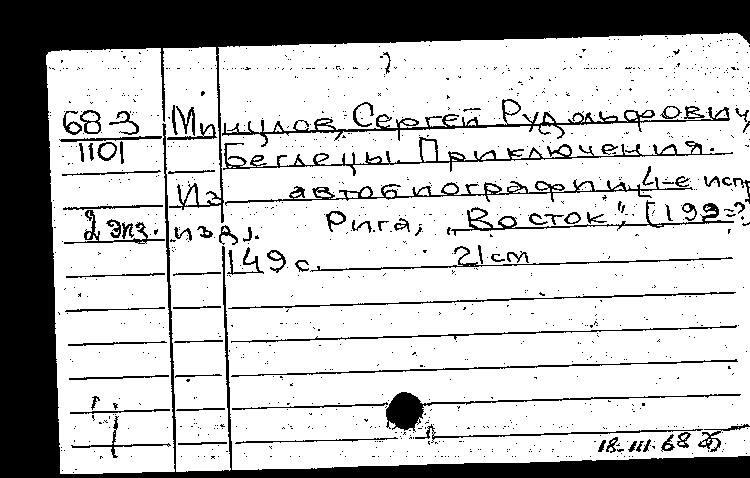 68-3 Минцлов, Сергей Рудольфович,
1101 Беглецы. Приключения.
Из автобиографии, 4-е испр
2 экз. изд. Рига, „Восток", [192=?
149 с. 21 cm
4
18-III.68